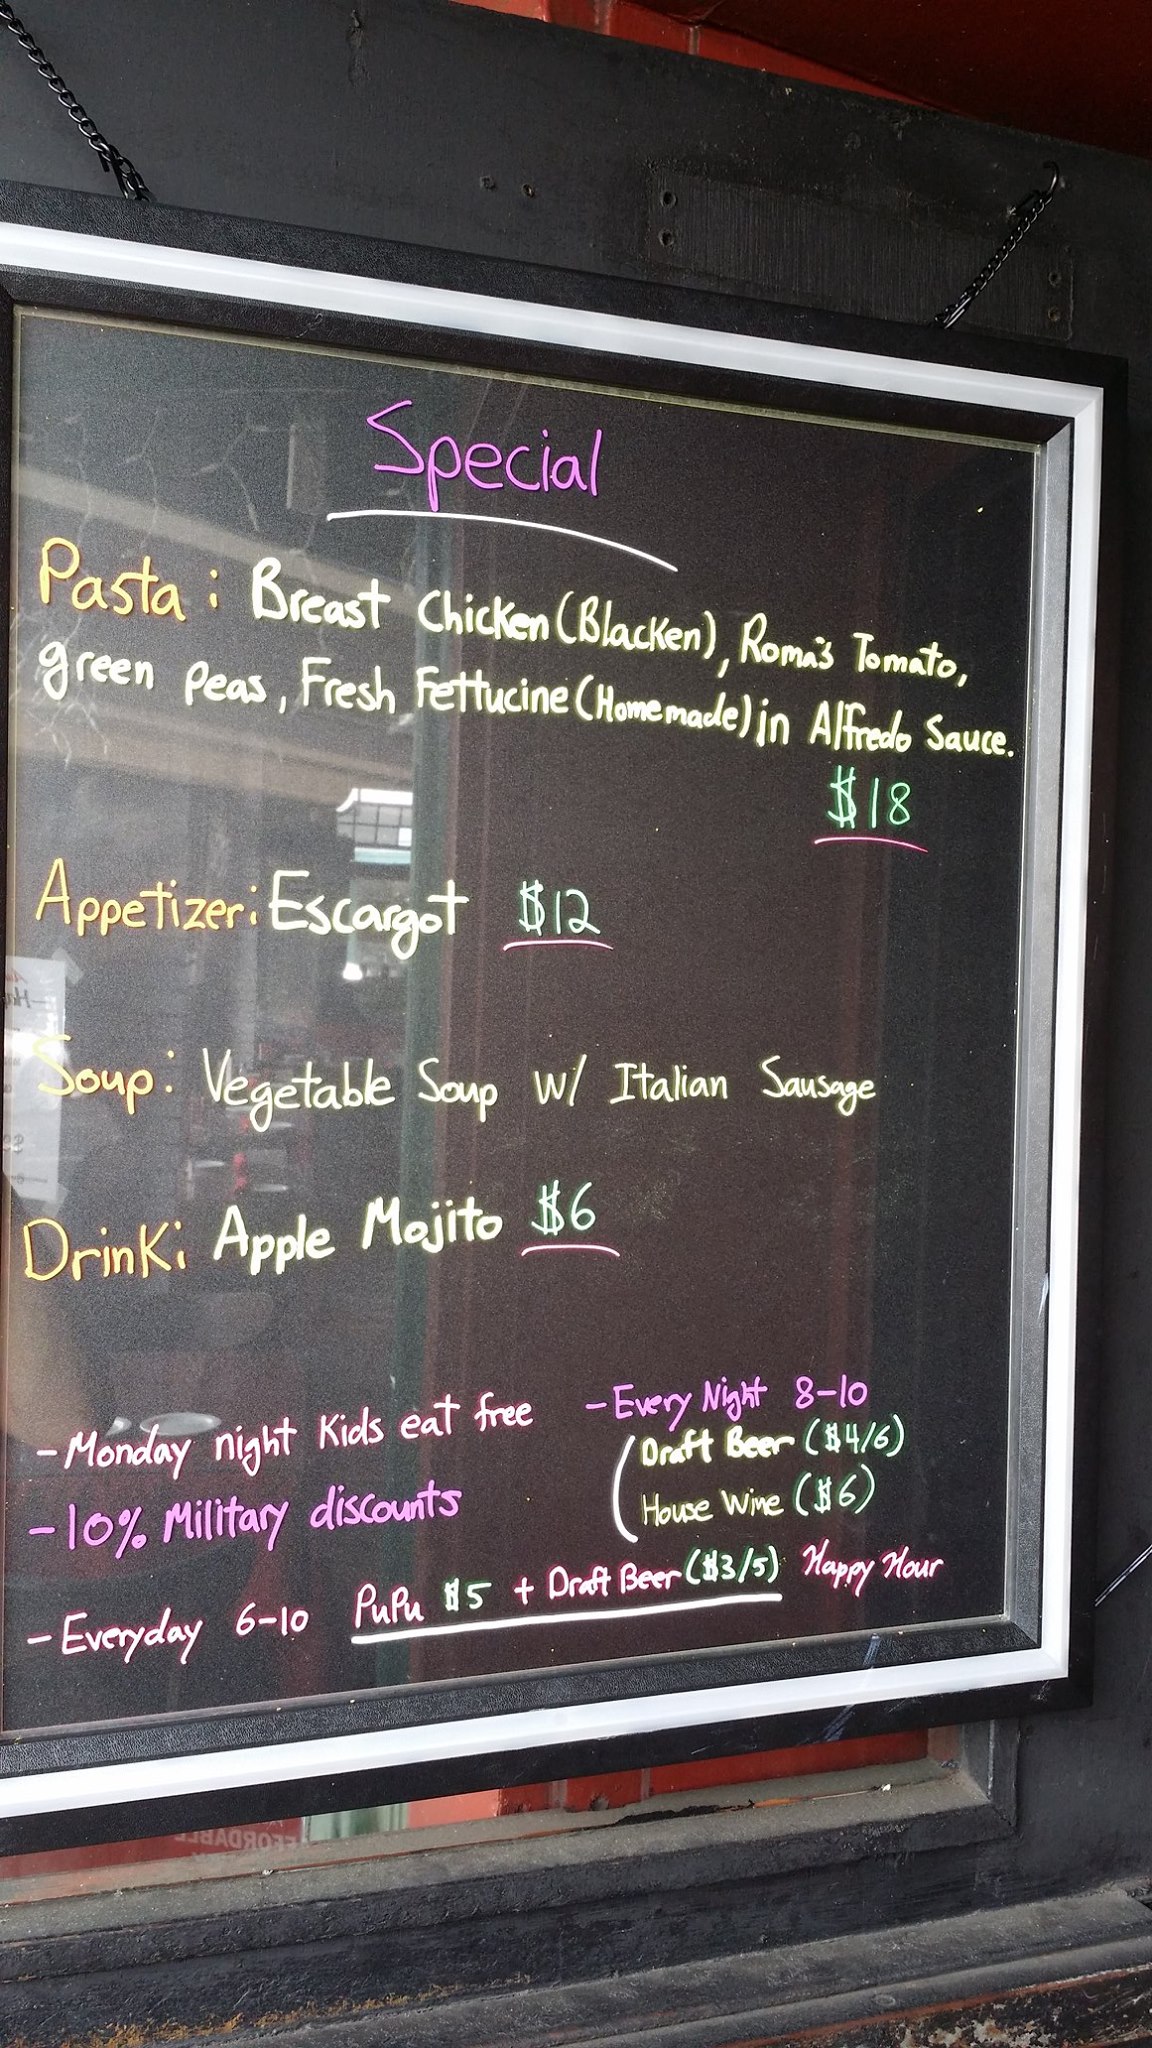 Special
Pasta: Breast Chicken (Blacken), Roma's Tomato,
green peas, Fresh Fettucine (Homemade) in Alfredo Sauce.
$18
Appetizer: Escargot $12
Soup: Vegetable Soup w/ Italian Sausage
Drink: Apple Mojito $6
- Monday night Kids eat free
- 10% Military discounts
- Every Night 8-10
Draft Beer ($4/6)
House Wine ($6)
- Everyday 6-10 PuPu $5 + Draft Beer ($3/5) Happy Hour